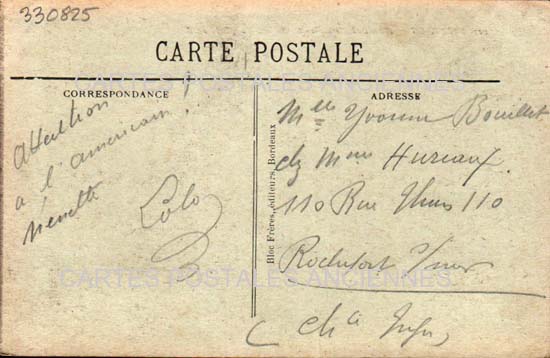 330825
CARTE POSTALE
CARTES POSTALES ANCIENNES
CORRESPONDANCE
Attention
a l'américain !
Lolo
ADRESSE
Melle Yvonne Bouillet
chz Mme Hureaux
110 Rue Thiers 110
Rochefort s/mer
(Ch^a Infre)
Bloc Frères, éditeurs, Bordeaux
CARTES POSTALES ANCIENNES